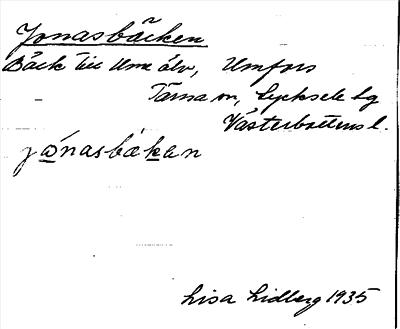 Jonasbäcken
Bäck till Ume älv, Umfors
Tärna sn, Lycksele lg
Västerbottens l.
jónasbäkan
Lisa Lidberg 1935